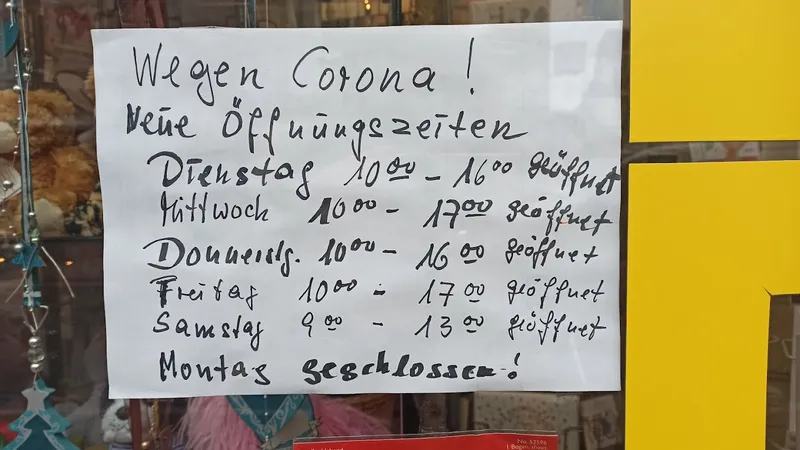 Wegen Corona!
Neue Öffnungszeiten
Dienstag 10 00 - 16 00 geöffnet
Mittwoch 10 00 - 17 00 geöffnet
Donnerstg. 10 00 - 16 00 geöffnet
Freitag 10 00 - 17 00 geöffnet
Samstag 9 00 - 13 00 geöffnet
Montag geschlossen!
No. 53596